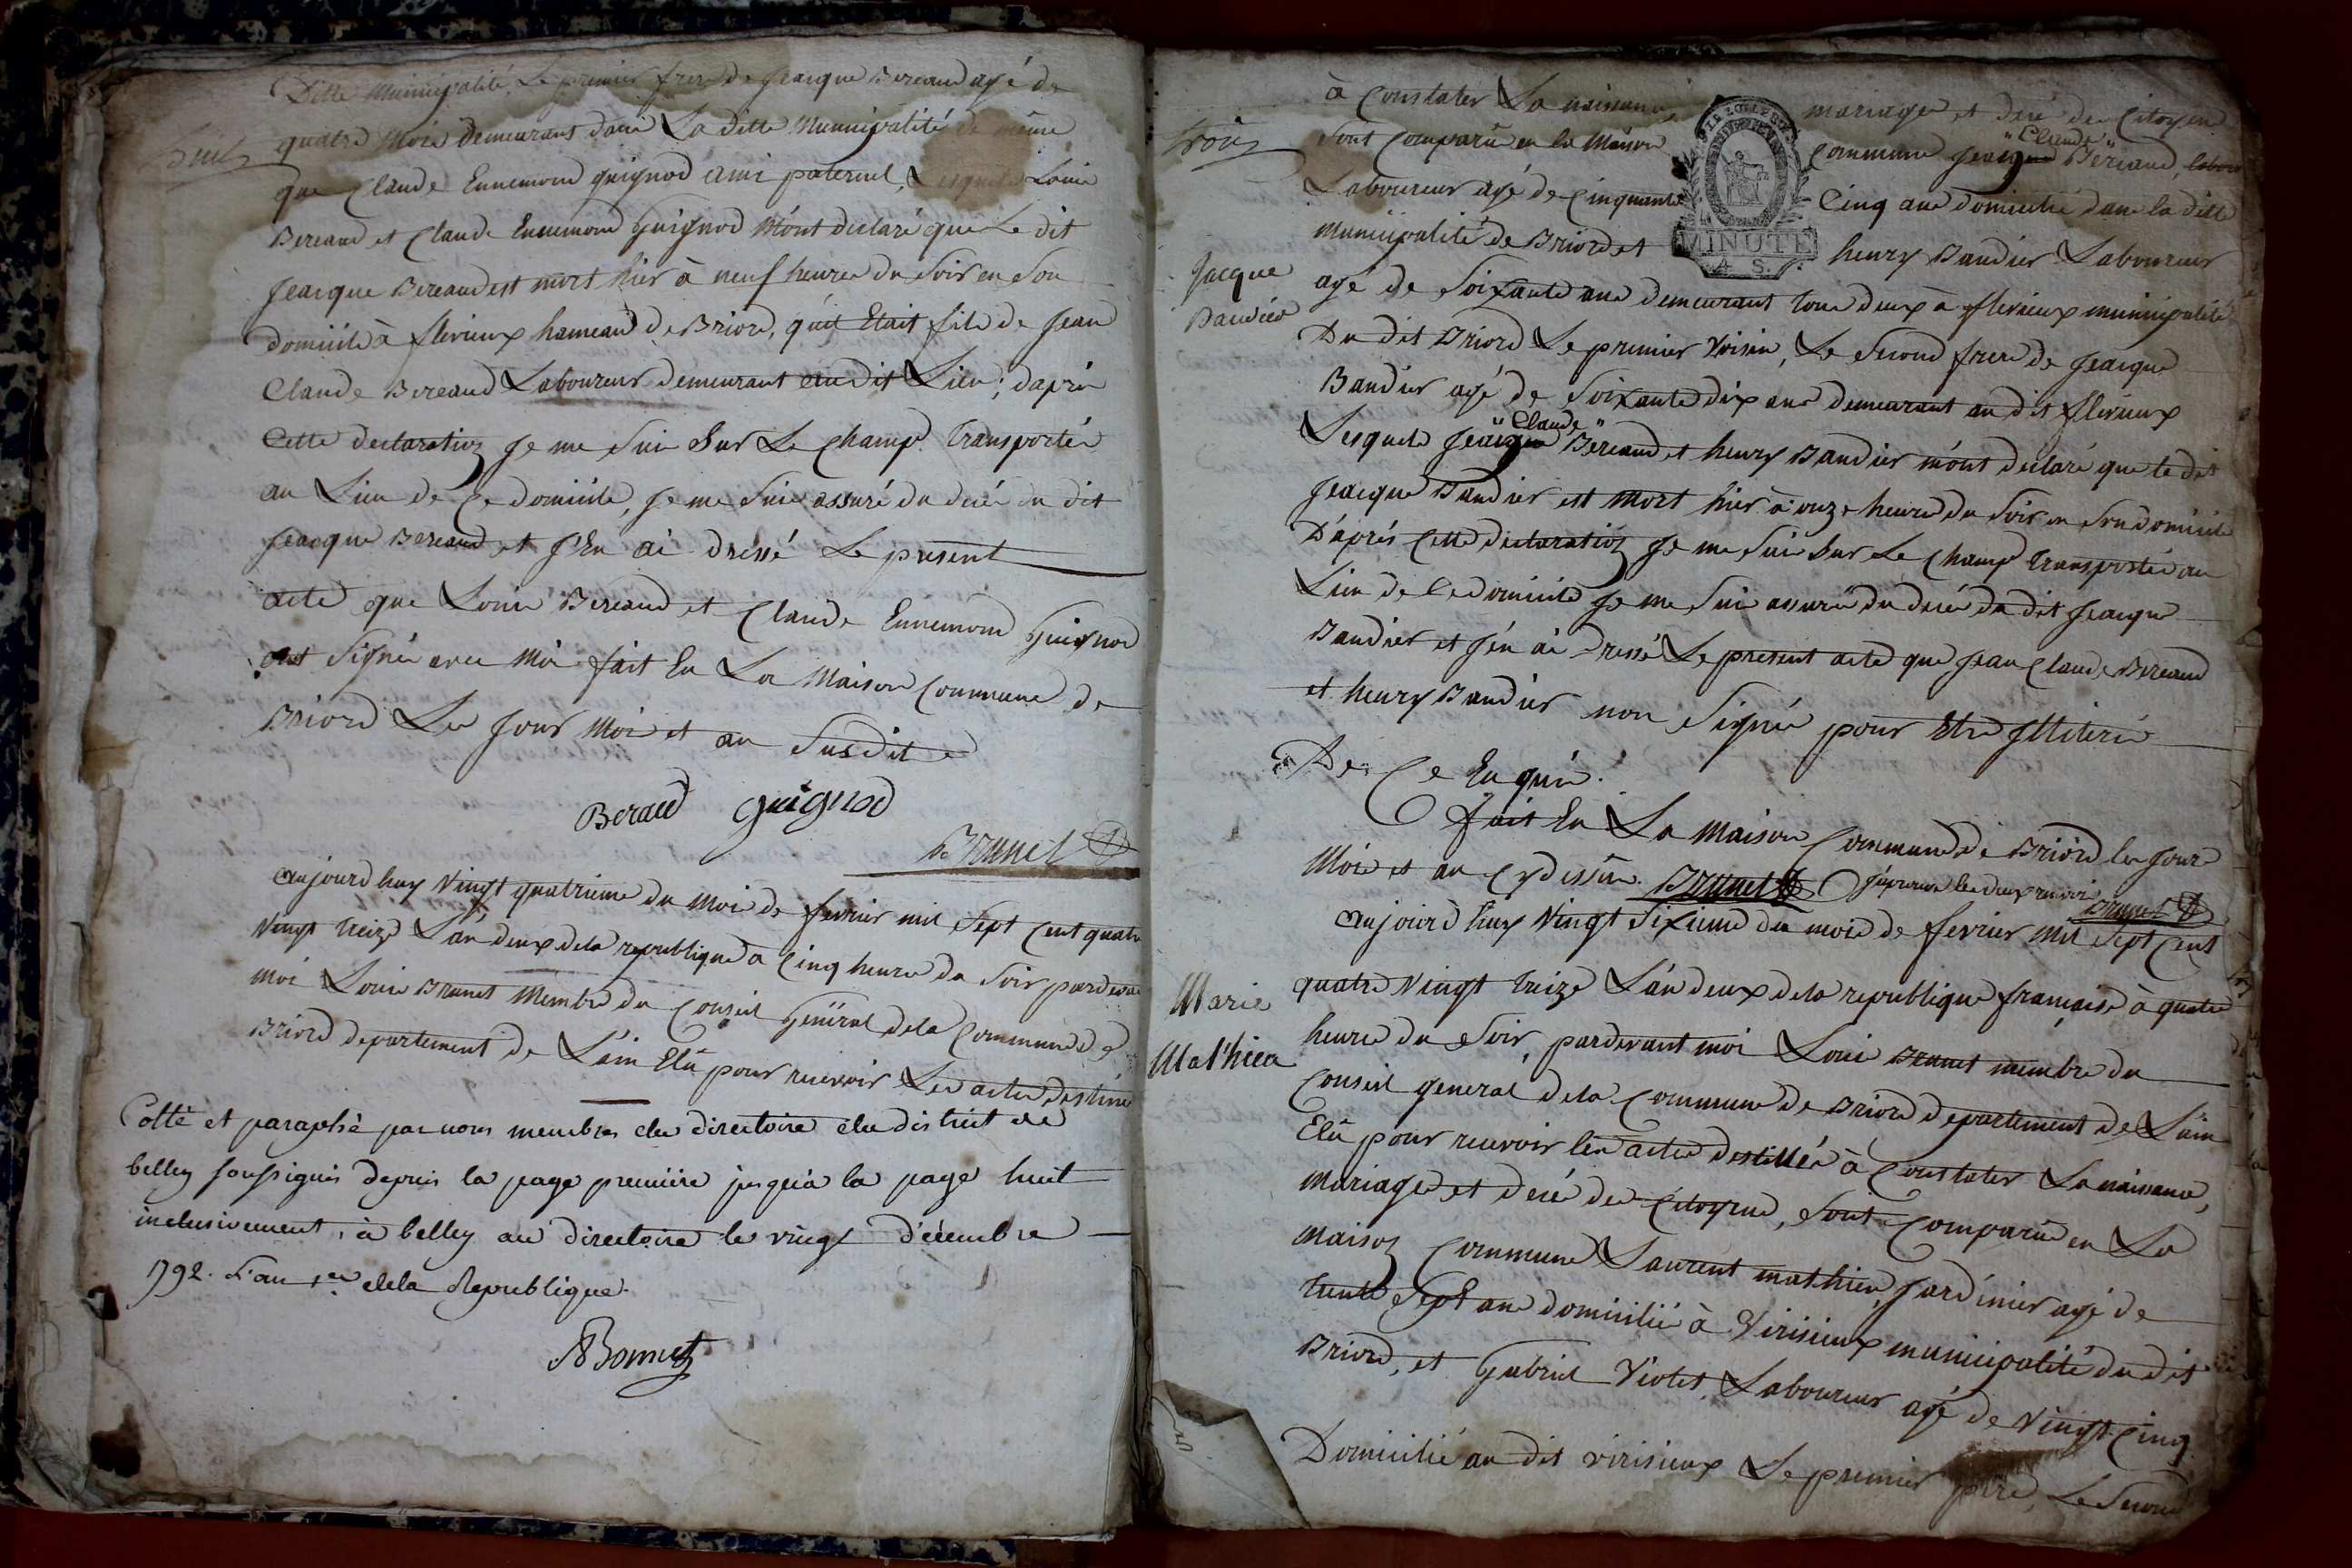 Ditte Municipalité, Le premier frere de Jeacque Bereaud agé de
deux
quatre Mois demeurant dans La ditte Municipalité de même
que Claude Ennemond guignod ami paternel, Lesquels Louis
Bereaud et Claude Ennemond Guignod m'ont declaré que Le dit
Jeacque Bereaud est mort hier à neuf heures du Soir en Son
domicile à flerieux hameau de Briord, qu'il Etait fils de Jean
Claude Bereaud Laboureur demeurant au dit Lieu; d'apris
Cette declaration Je me Suis Sur Le Champ Transportés
au Lieu de Ce domicile, Je me Suis assuré du decés du dit
Jeacque Bereaud et J'En ai dressé Le present
acte que Louis Bereaud et Claude Ennemond Guignod
ont Signés avec Moi fait En La Maison Commune de
Briord Les Jour Mois et an Susdits
Beraud guignod
Brunet
aujourd'huy Vingt quatrieme du Mois de fevrier mil Sept Cent quatre
Vingt treize L'an deux de la republique a Cinq heures du Soir pardevant
moi Louis Brunet Membre du Conseil General de la Commune de
Briord departement de L'ain Elû pour recevoir Les actes destinés
Cotté et paraphé par nous membres du directoire du district de
belley soussignés depuis la page premiere jusqu'à la page huit
inclusivement, à belley au directoire le vingt décembre
1792. L'an 1er de la Republique.
Bonnet
à Constater La naissance, mariage et decé des Citoyens
trois
Sont Comparus en la Maison Commune Jeacque Claude Bereaud, labour
Laboureur agé de Cinquante Cinq ans domicilié dans la ditte
MINUTE
4 S.
Municipalité de Briord et henry Baudier Laboureur
Jacque
Baudier
agé de Soixante ans demeurant tous deux à flerieux municipalité
Du dit Briord Le premier Voisin, Le Second frere de Jeacque
Baudier agé de Soixante dix ans demeurant au dit flerieux
Lesquels Jeacque Claude Bereaud et henry Baudier m'ont declaré que le dit
Jeacque Baudier est Mort hier à onze heures du Soir en Son domicile
D'aprés Cette declaration Je me Suis Sur Le Champ transporté au
Lieu de Ce domicile Je me Suis assuré du decés du dit Jeacque
Baudier et J'en ai dressé Le present acte que Jean Claude Bereaud
et henry Baudier non Signés pour Etre Illiterés
De Ce Enquis.
Fait En La Maison Commune de Briord les Jour
Mois et an Cy dessus. Brunet J'aprouve les deux renvois Brunet
aujourd'huy Vingt Sixieme du mois de fevrier mil Sept Cent
Marie
Mathieu
quatre Vingt treize L'an deux de la republique francaise à quatre
heures du Soir, pardevant moi Louis Brunet membre du
Conseil general de la Commune de Briord departement de L'ain
Elû pour recevoir les actes destinés à Constater La naissance,
mariage et decés des Citoyens, Sont Comparus en La
Maison Commune Laurent mathieu, Jardinier agé de
trente Sept ans domicilié à Virisieux municipalité du dit
Briord, et Gabriel Violet, Laboureur agé de Vingt Cinq
Domicilié au dit virisieux Le premier pere, Le Second